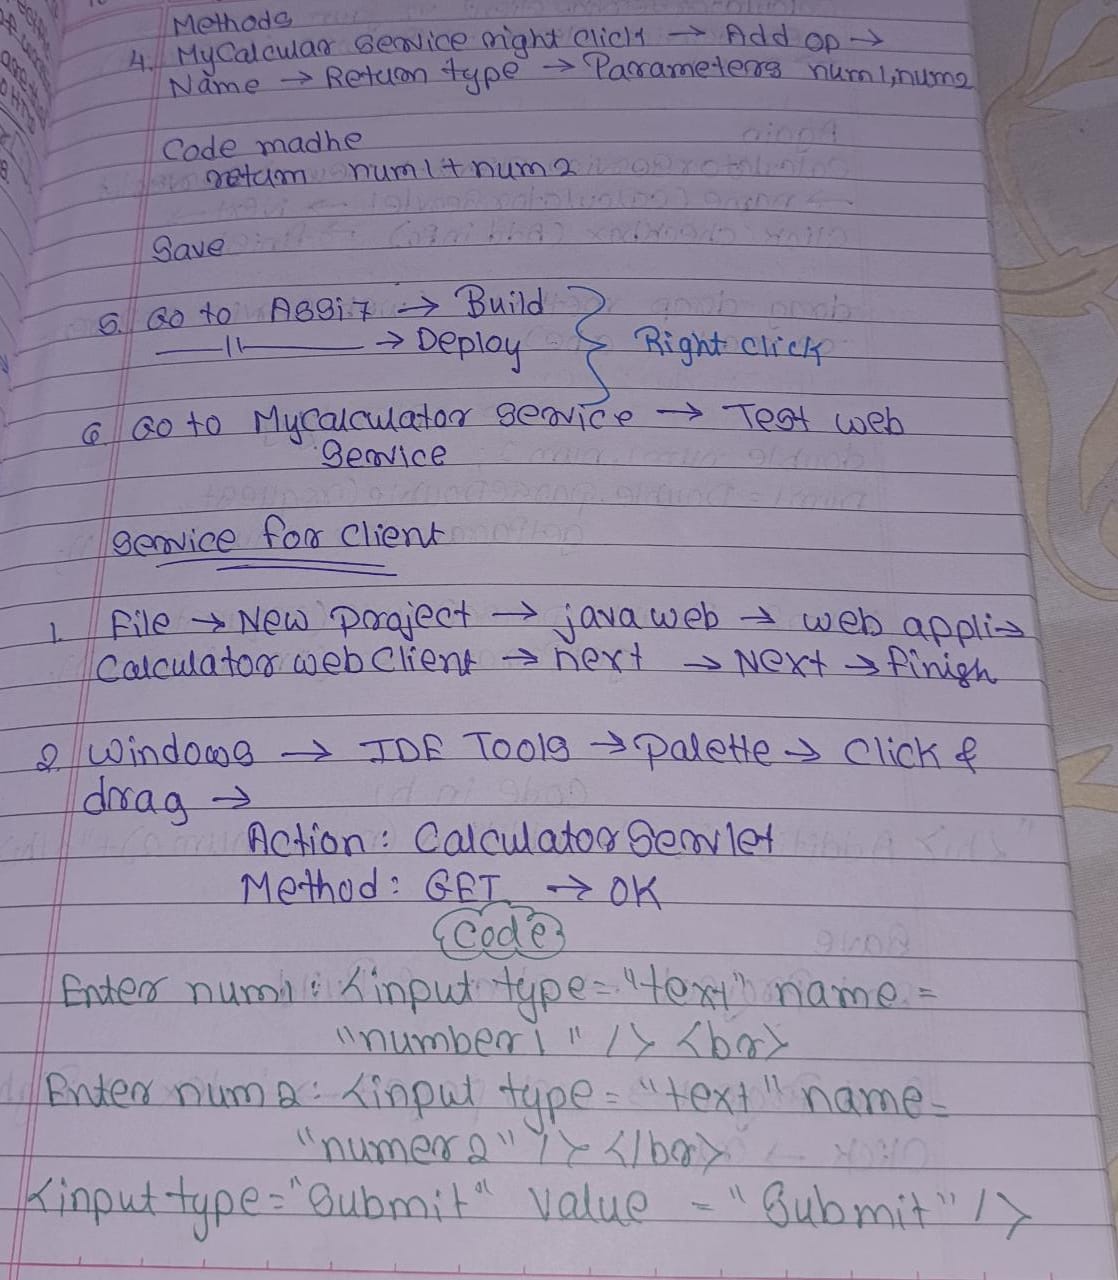 Methods
4. MyCalcular Service right click → Add op →
Name → Return type → Parameters num1,num2
Code madhe
return num1+num2
Save
5. Go to Assi7 → Build
—〃— → Deploy
Right click
6 Go to MyCalculator Service → Test web
Service
Service for Client
1. File → New project → java web → web appli →
Calculator web Client → next → Next → finish
2. Windows → IDE Tools → palette → Click &
drag →
Action: Calculator Servlet
Method: GET → OK
{Code}
Enter num1: <input type="text" name=
"number1" /> <br>
Enter num2: <input type="text" name=
"numer2" /> </br>
<input type="Submit" value = "Submit" />